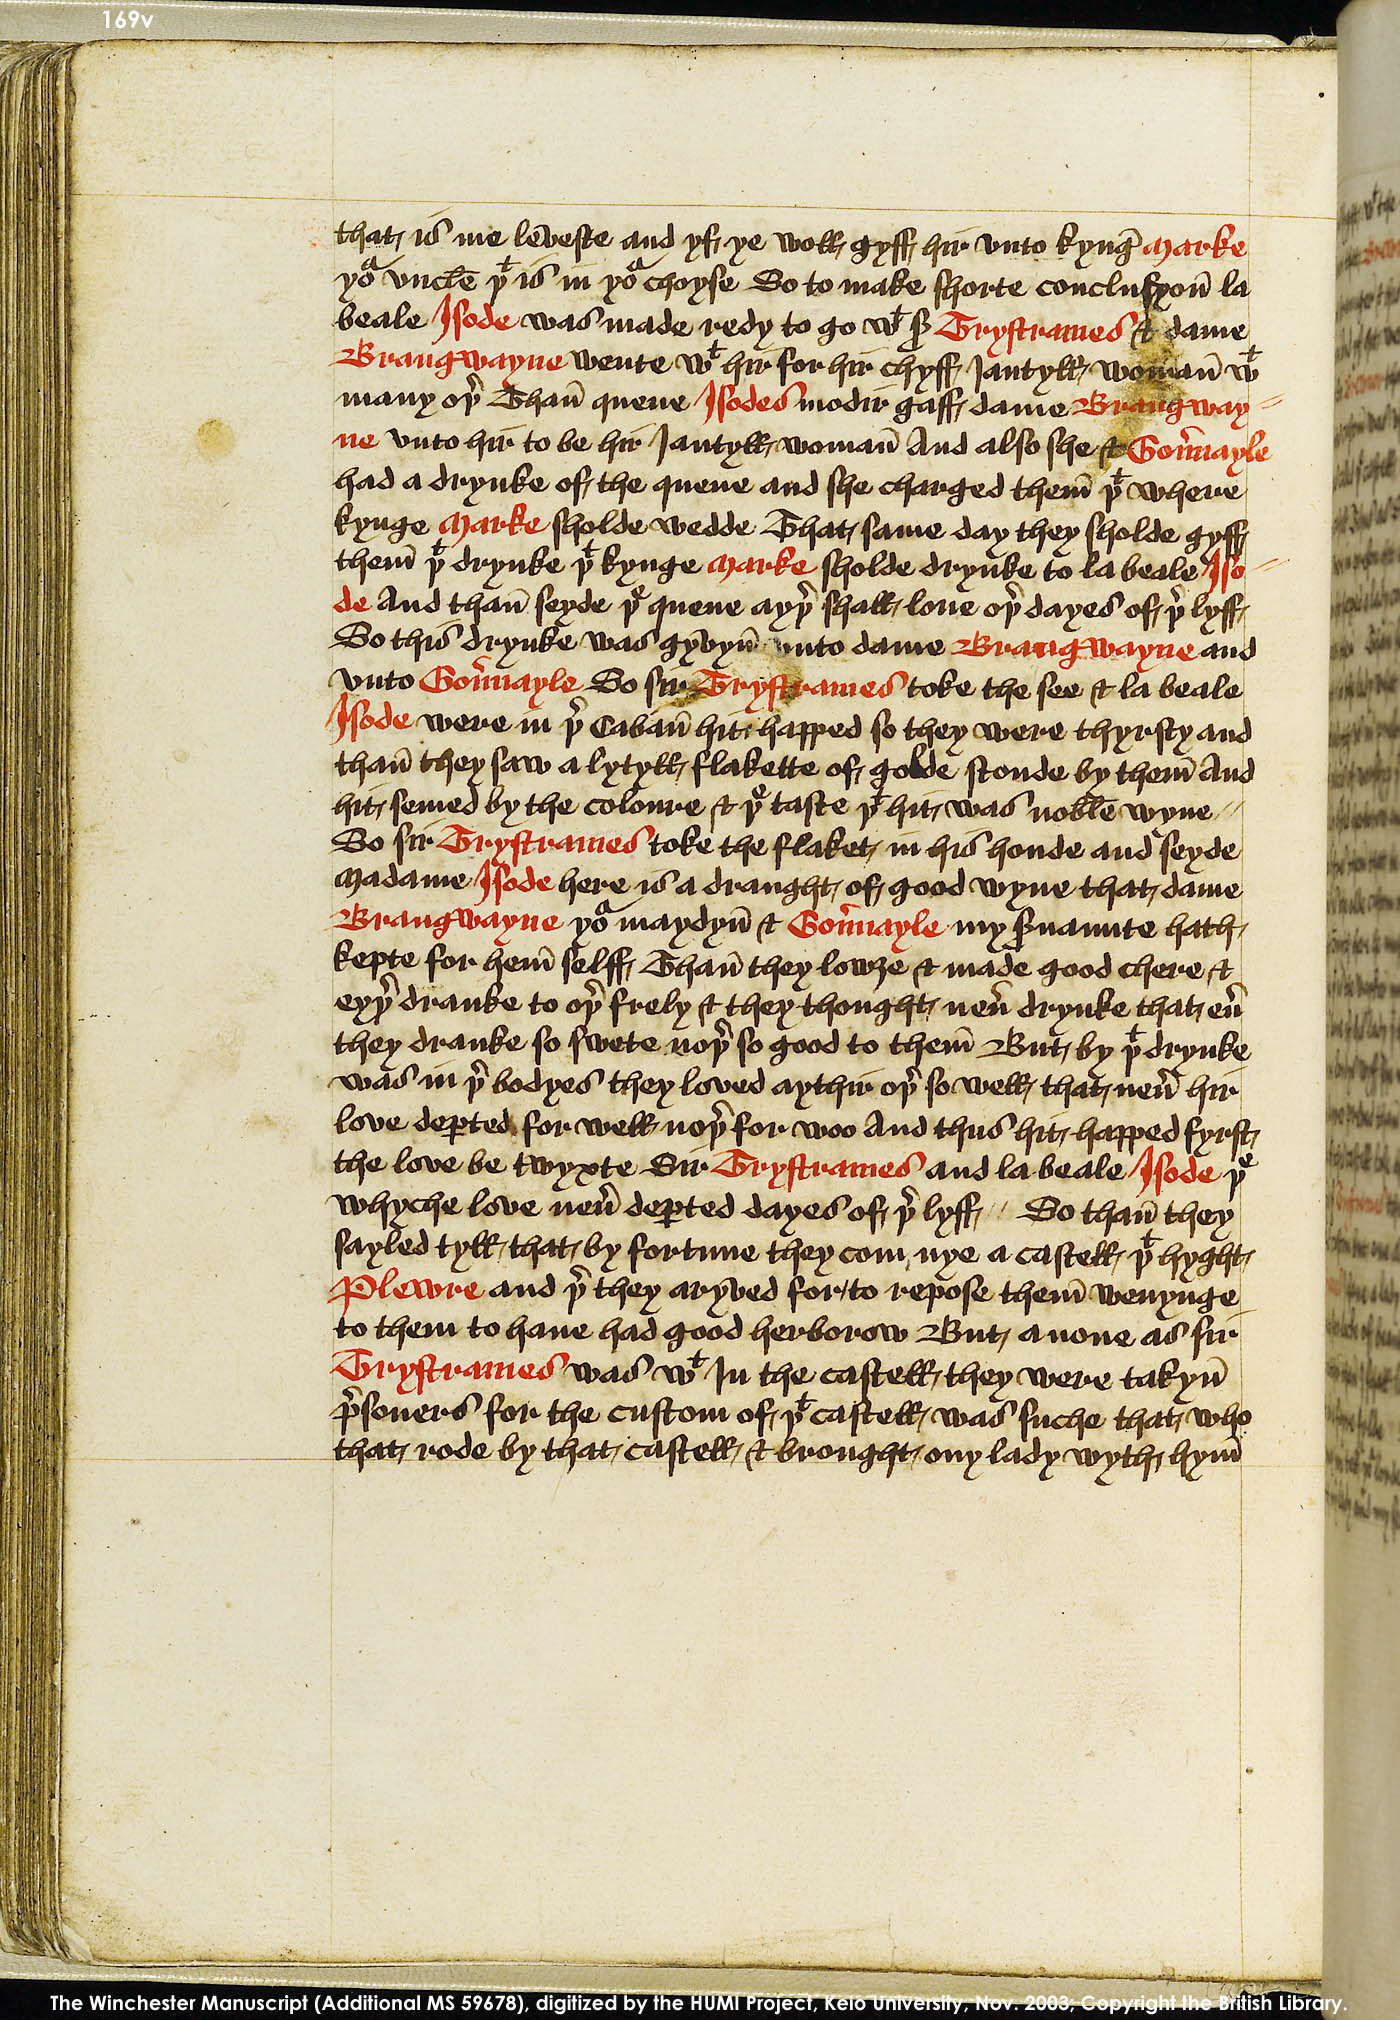 169v
that is me leveste and yf ye woll gyff hir vnto kynge Marke
yoᵃ vncle þᵗ is in yoᵃ choyse So to make shorte conclusyon̄ la
beale Isode was made redy to go wᵗ sᵖ Trystrames & dame
Brangwayne wente wᵗ hir for hir chyff Jantyll woman̄ wᵗ
many oþ̉ Than̄ quene Isodes modir gaff dame Brangway⸗
ne vnto hir to be hir Jantyll woman̄ And also she & Goủnayle
had a drynke of the quene and she charged them̄ þᵗ where
kynge Marke sholde wedde That same day they sholde gyff
them̄ þᵗ drynke þᵗ kynge Marke sholde drynke to la beale Iso⸗
de And than̄ seyde þᵉ quene ayþ̉ shall loue oþ̉ dayes of þ̉ lyff
So this drynke was gyvyn̄ vnto dame Brangwayne and
vnto Goủnayle So sir Trystrames toke the see & la beale
Isode were in þ̉ Caban̄ hit happed so they were thyrsty and
than̄ they saw a lytyll flakette of golde stonde by them̄ And
hit semed by the coloure & þᵉ taste þᵗ hit was noble wyne //
So sir Trystrames toke the flaket in his honde and seyde
Madame Isode here is a draught of good wyne that dame
Brangwayne yoᵃ maydyn̄ & Goủnayle my s̉uaunte hath
kepte for hem̄ selff Than̄ they lowȝe & made good chere &
eyþ̉ dranke to oþ̉ frely & they thought neủ drynke that eủ
they dranke so swete noþ̉ so good to them̄ But by þᵗ drynke
was in þ̉ bodyes they loved aythir oþ̉ so well that neủ hir
love dep̱ted for well noþ̉ for woo And thus hit happed fyrst
the love be twyxte Sir Trystrames and la beale Isode þᵉ
whyche love neủ dep̱ted dayes of þ̉ lyff // So than̄ they
sayled tyll that by fortune they com nye a castell þᵗ hyght
Plewre and þ̉ they aryved for to repose them̄ wenynge
to them to haue had good herborow But anone as sir
Trystrames was wᵗ In the castell they were takyn̄
p̉soners for the custom of þᵗ castell was suche that who
that rode by that castell & brought ony lady wyth hym̄
The Winchester Manuscript (Additional MS 59678), digitized by the HUMI Project, Keio University, Nov. 2003; Copyright the British Library.